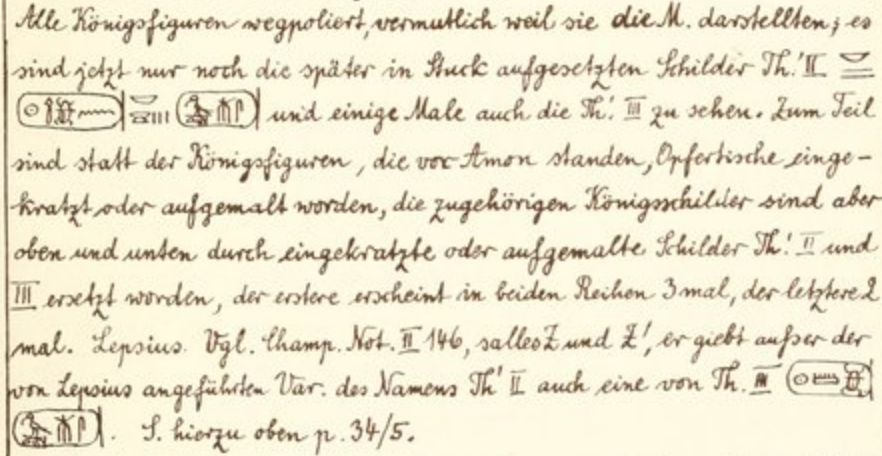 Alle Königsfiguren wegpoliert, vermutlich weil sie die M. darstellten; es
sind jetzt nur noch die später in Stuck aufgesetzten Schilder Th.' II
und einige Male auch die Th.' III zu sehen. Zum Teil
sind statt der Königsfiguren, die vor Amon standen, Opfertische einge-
kratzt oder aufgemalt worden, die zugehörigen Königsschilder sind aber
oben und unten durch eingekratzte oder aufgemalte Schilder Th.' II und
III ersetzt worden, der erstere erscheint in beiden Reihen 3 mal, der letztere 2
mal. Lepsius. Vgl. Champ. Not. II 146, salles Z und Z', er giebt außer der
von Lepsius angeführten Var. des Namens Th' II auch eine von Th. III
S. hierzu oben p. 34/5.